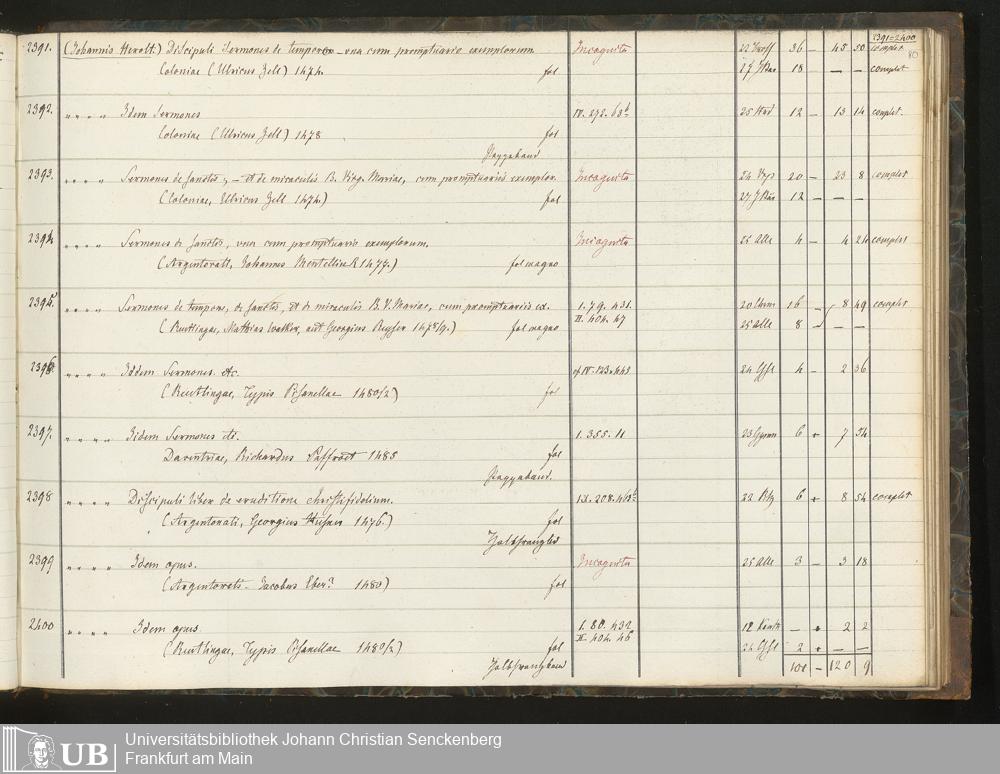 1391=2400
80
2391. (Johannis Herolt.) Discipuli Sermones de tempore - una cum promptuario exemplorum Incognita 36 - 45 50 complet
Coloniae (Ulricus Zell) 1474 fol 18 - - - complet
2392. " " " " Idem Sermones IV. 292. 63b 12 - 13 14 complet.
Coloniae (Ulricus Zell) 1478 fol
Pappeband
2393. " " " " Sermones de sanctis, - et de miraculis B. Virg. Mariae, cum promptuariis exemplor. Incognita 20 - 23 8 complet
(Coloniae, Ulricus Zell 1474) fol 12 - - -
2394. " " " " Sermones de sanctis, una cum promptuario exemplorum. Incognita 25 Alle 4 - 4 24 complet
(Argentorati, Johannes Mentellin 1477.) fol magno
2395. " " " " Sermones de tempore, de sanctis, et de miraculis B. V. Mariae, cum promptuariis ex. 1. 79. 431. 16 - 8 49 complet
(Reutlingae, Mathias Walker, aut Georgius Reyser 1478/9.) fol magno II. 404. 47 25 Alle 8 - - -
2396. " " " " Iidem Sermones etc. cf IV. 123. 448 4 - 2 36
(Reutlingae, Typis Otmarianis 1480/2) fol
2397. " " " " Iidem Sermones etc. 1. 355. 11 6 + 7 54
Daventriae, Richardus Paffroet 1485 fol
Pappeband.
2398 " " " " Discipuli Liber de eruditione christifidelium. 6 + 8 54 complet
(Argentorati, Georgius Husner 1476.) fol
Halbfranzbd
2399 " " " " Idem opus. Incognita 25 Alle 3 - 3 18
(Argentorati. Jacobus Eber? 1480) fol
2400 " " " " Idem opus. 1. 80. 432 - + 2 2
(Reutlingae, Typis 1480/2) fol II. 404. 46 2 + - -
Halbfranzband 101 - 120 9
UB Universitätsbibliothek Johann Christian Senckenberg
Frankfurt am Main